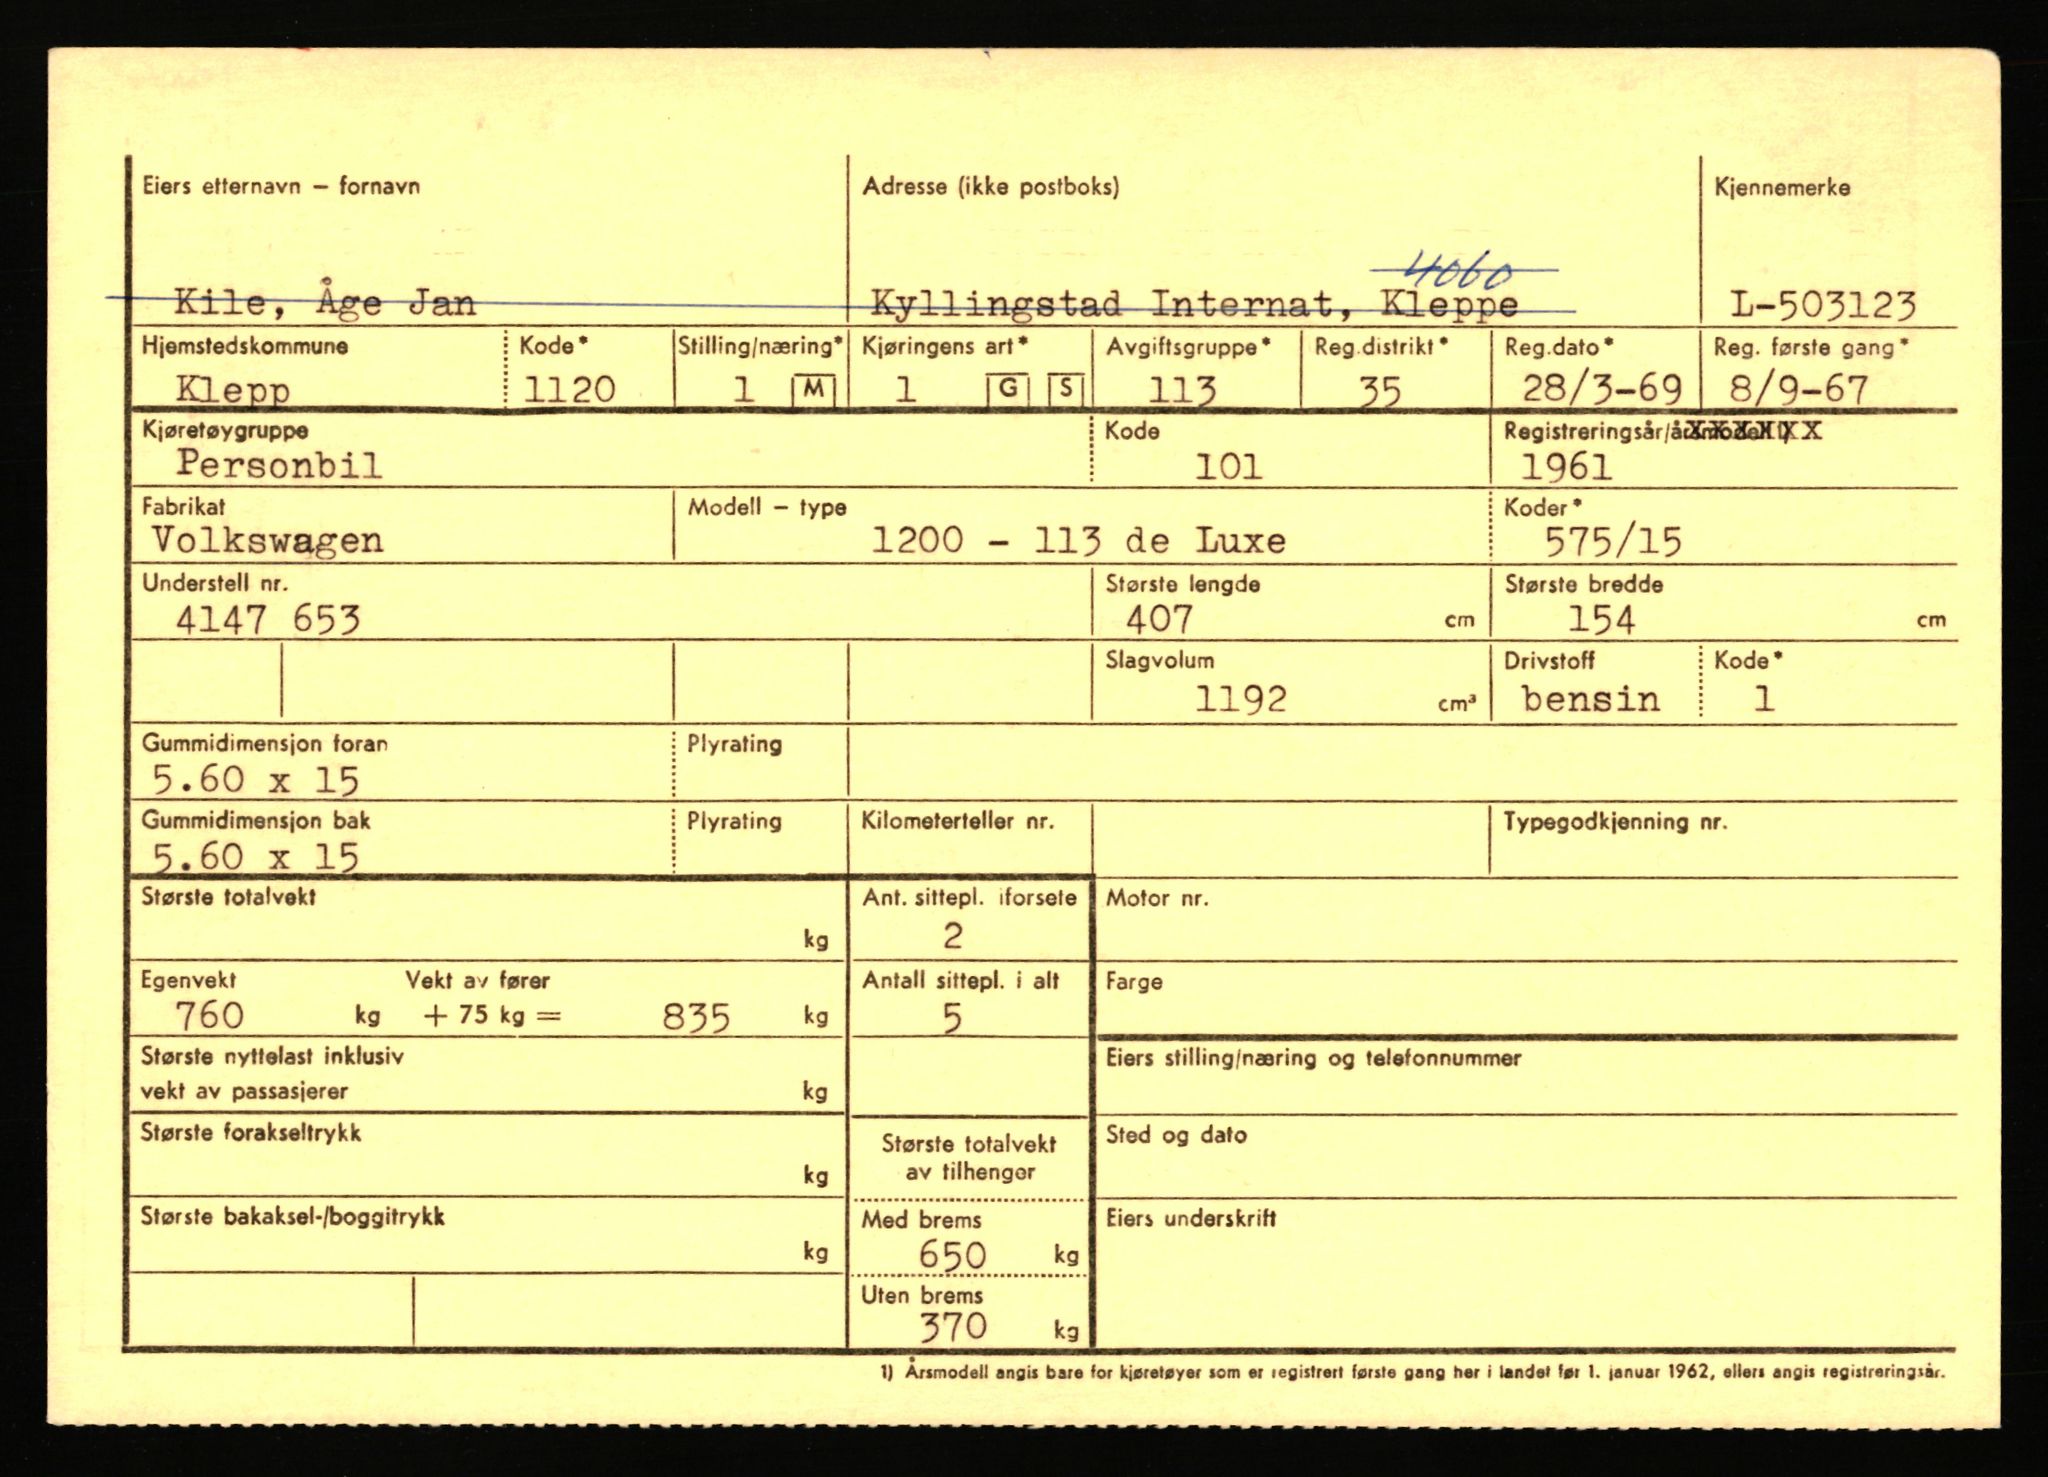 Eiers etternavn – fornavn Adresse (ikke postboks) Kjennemerke
4060
Kile, Åge Jan Kyllingstad Internat, Kleppe L-503123
Hjemstedskommune Kode* Stilling/næring* Kjøringens art* Avgiftsgruppe* Reg.distrikt* Reg.dato* Reg. første gang*
Klepp 1120 1 M 1 G S 113 35 28/3-69 8/9-67
Kjøretøygruppe Kode Registreringsår/årsmodell 1) XXXXXX
Personbil 101 1961
Fabrikat Modell – type Koder*
Volkswagen 1200 - 113 de Luxe 575/15
Understell nr. Største lengde Største bredde
4147 653 407 cm 154 cm
Slagvolum Drivstoff Kode*
1192 cm³ bensin 1
Gummidimensjon foran Plyrating
5.60 x 15
Gummidimensjon bak Plyrating Kilometerteller nr. Typegodkjenning nr.
5.60 x 15
Største totalvekt Ant. sittepl. iforsete Motor nr.
kg 2
Egenvekt Vekt av fører Antall sittepl. i alt Farge
760 kg + 75 kg = 835 kg 5
Største nyttelast inklusiv Eiers stilling/næring og telefonnummer
vekt av passasjerer kg
Største forakseltrykk Største totalvekt Sted og dato
kg av tilhenger
Største bakaksel-/boggitrykk Med brems Eiers underskrift
kg 650 kg
Uten brems
370 kg
1) Årsmodell angis bare for kjøretøyer som er registrert første gang her i landet før 1. januar 1962, ellers angis registreringsår.